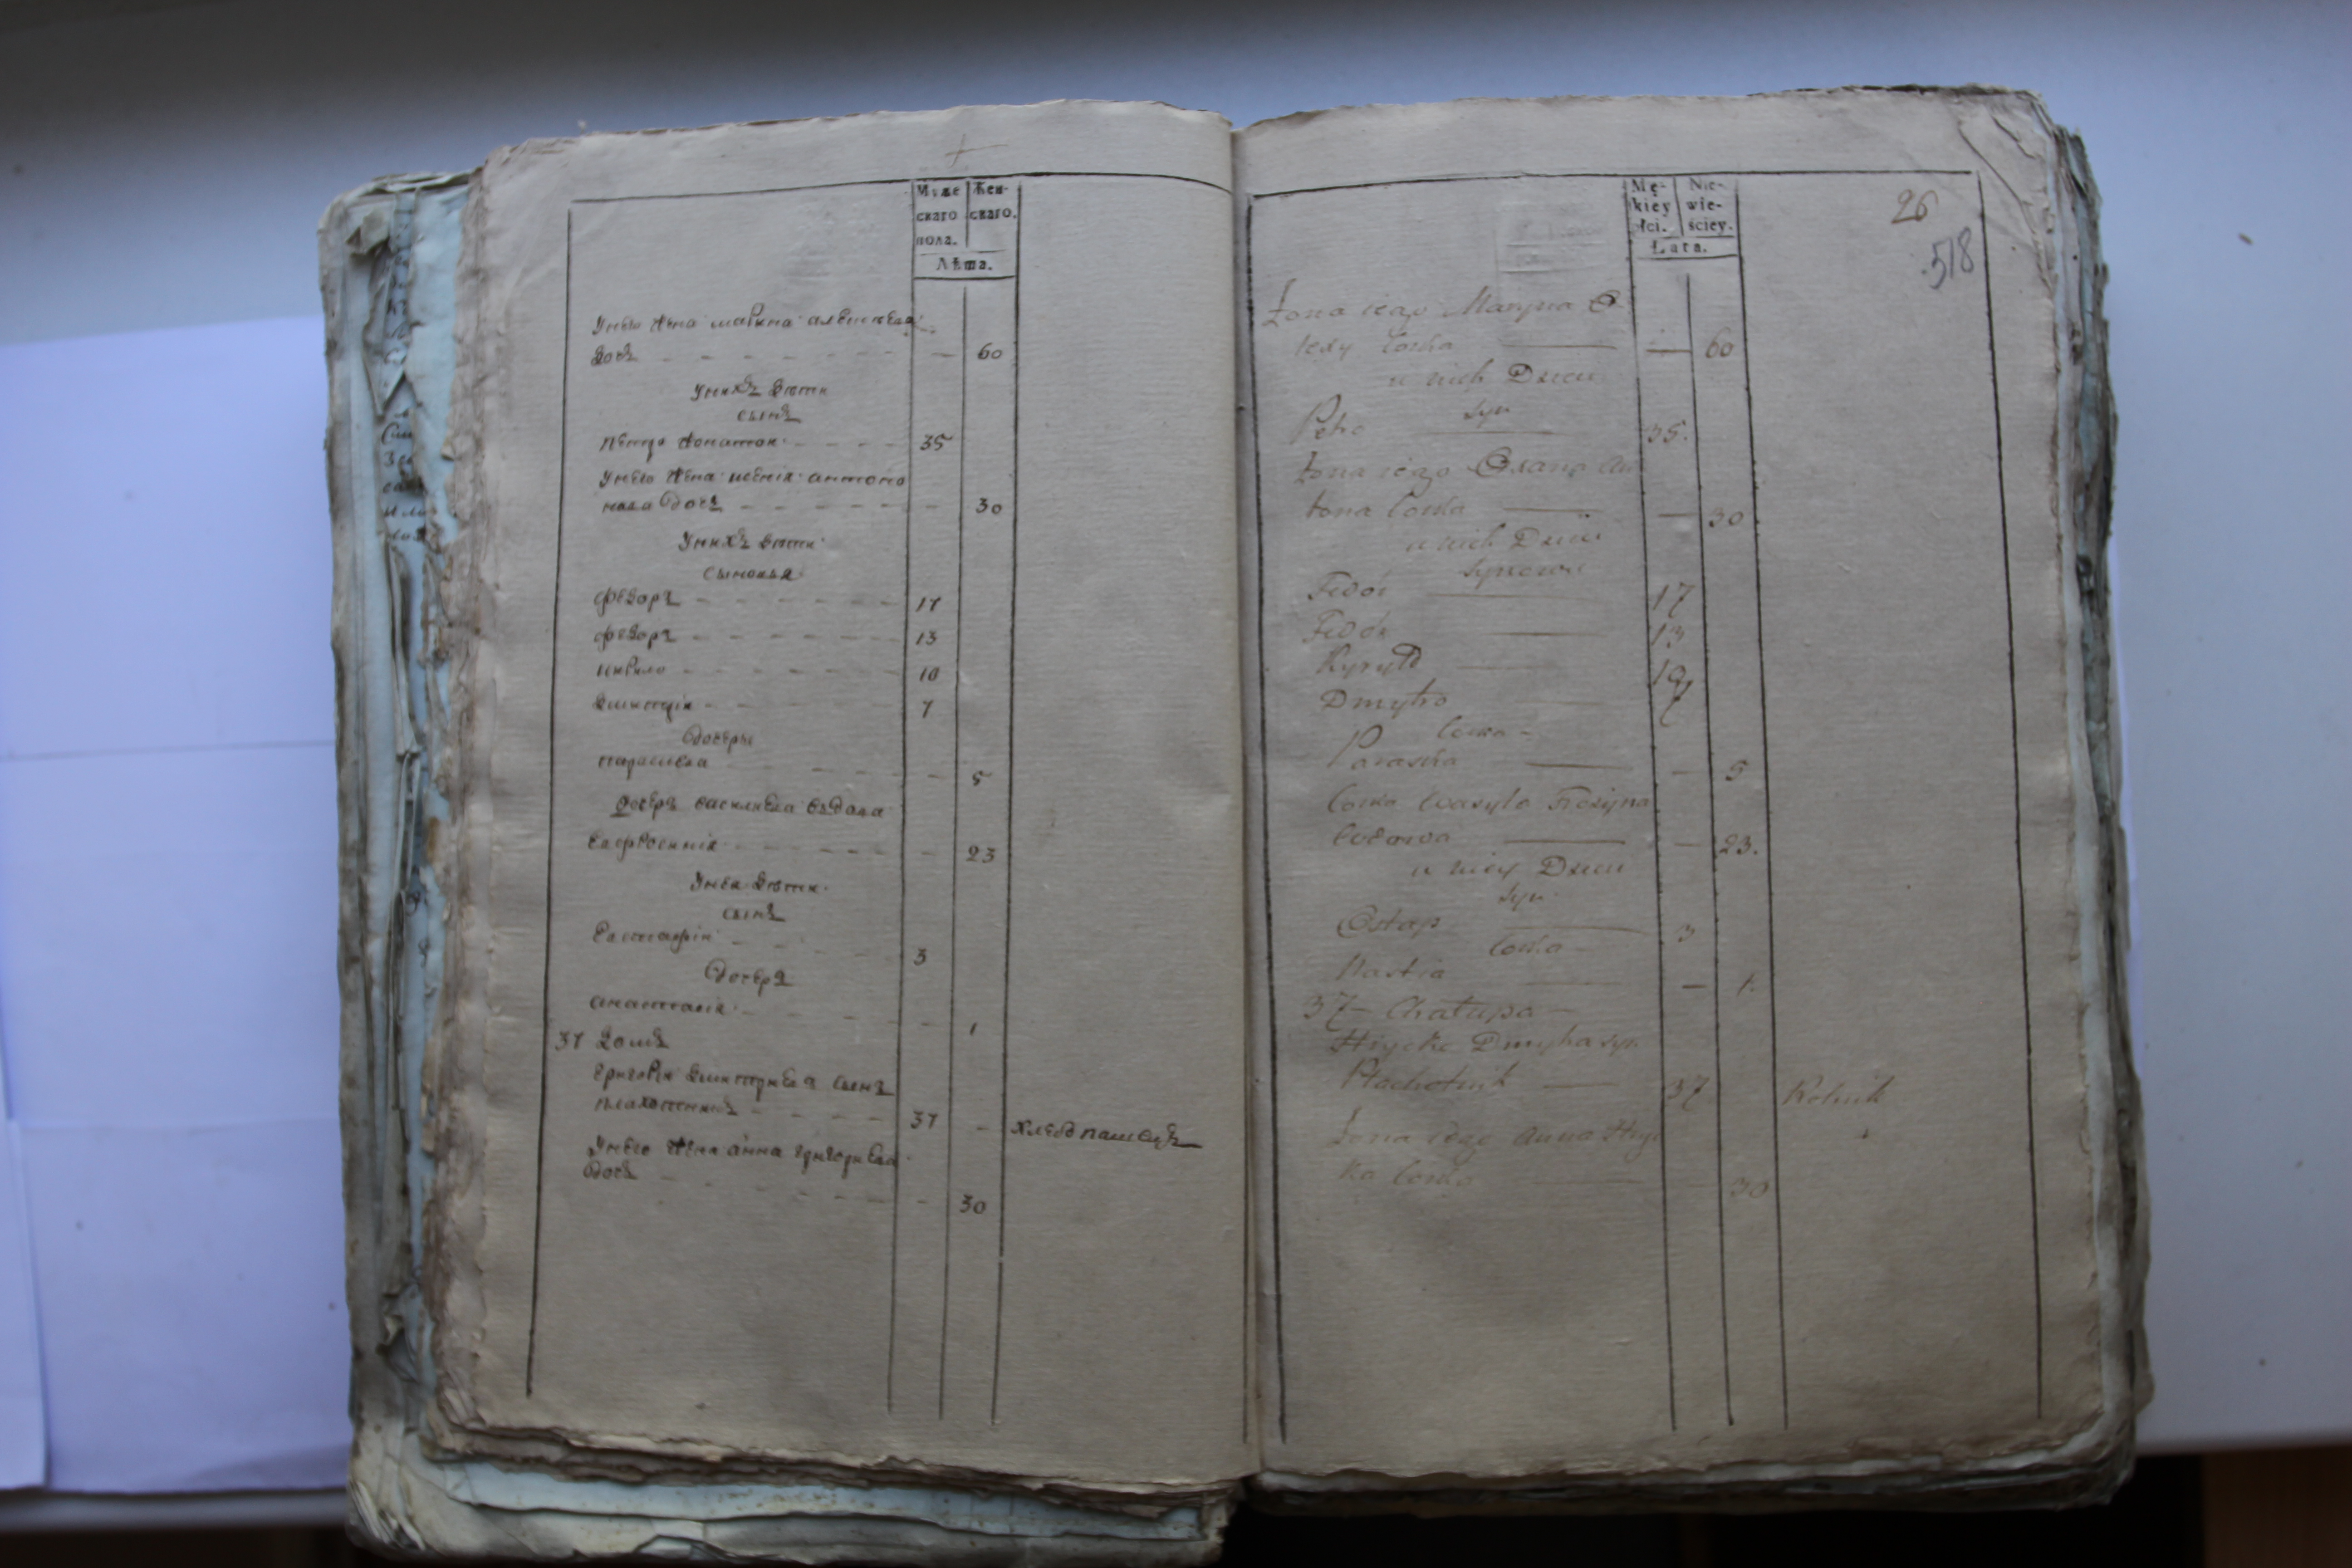 Муже
скаго
пола.
Жен-
скаго.
Лѣта.
Унего жена марина алексѣева
дочь 60
Унихъ дѣти
сынъ
Петро 35
Унего жена ксенія антоно
нова дочь 30
Унихъ дѣти
сыновья
Федоръ 17
Федоръ 13
кирило 10
Димитрій 7
Дочеры
параскева 5
Дочерь василиева вдова
Евфросинія 23
Унея дѣти
сынъ
Евстафій 3
Дочерь
анастасія 1
37 домъ
григорій димитріевъ сынъ
плахотникъ 37 хлебопашецъ
Унего жена анна григориева
дочь 30
26
518
Mę-
kiey
łci.
Nie-
wie-
ściey.
Łata.
Żona iego Maryna O
lexy Corka 60
u nich Dzieci
syn
Petro 35.
Żona iego Oxana An
tona Corka 30
u nich Dzieci
synowie
Fedór 17
Fedór 13
Kyryło 10
Dmytro 7
Corka
Paraska 5
Corka Wasyla
Wdowa 23.
u niey Dzieci
syn
Ostap 3
Corka
Nastia 1.
37 Chałupa
Hryćko Dmytra syn
Płachotnik 37 Rolnik
Żona iego Anna Hry
ka Corka 30